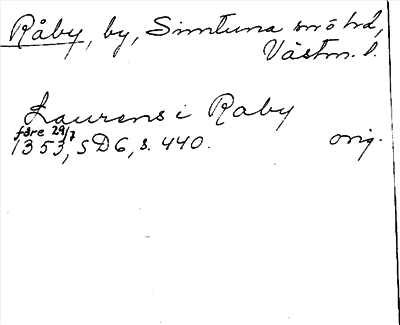 Råby, by, Simtuna sn o hd,
Västm. l.
Laurens i Raby
före 29/7
1353, SD6, s. 440. orig.